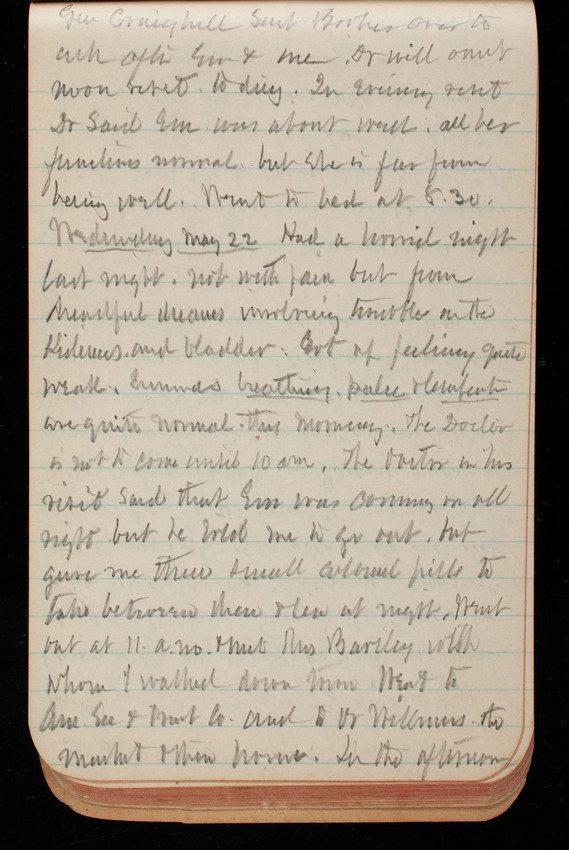 Gen Craighill Sent Booker over to
ask after Em & me. Dr will omit
noon visit to day. In Evening visit
Dr Said Em was about well. all her
functions normal but she is far from
being well. Went to bed at 8.30.
Wednesday May 22 Had a horrid night
last night. not with pain but from
dreadful dreams involving trouble on the
Kidneys and bladder. Got up feeling quite
weak. Emmas breathing, pulse &
are quite normal this morning. The Doctor
is not to come until 10 am. The Doctor in his
visit said that Em was coming on all
right but he told me to go out, but
gave me three small colored pills to
take between then & at night. Went
out at 11. a.m. & met Barcley with
whom I walked down town Went to
Am See & Trust Co. and to the
market & then home. In the afternoon